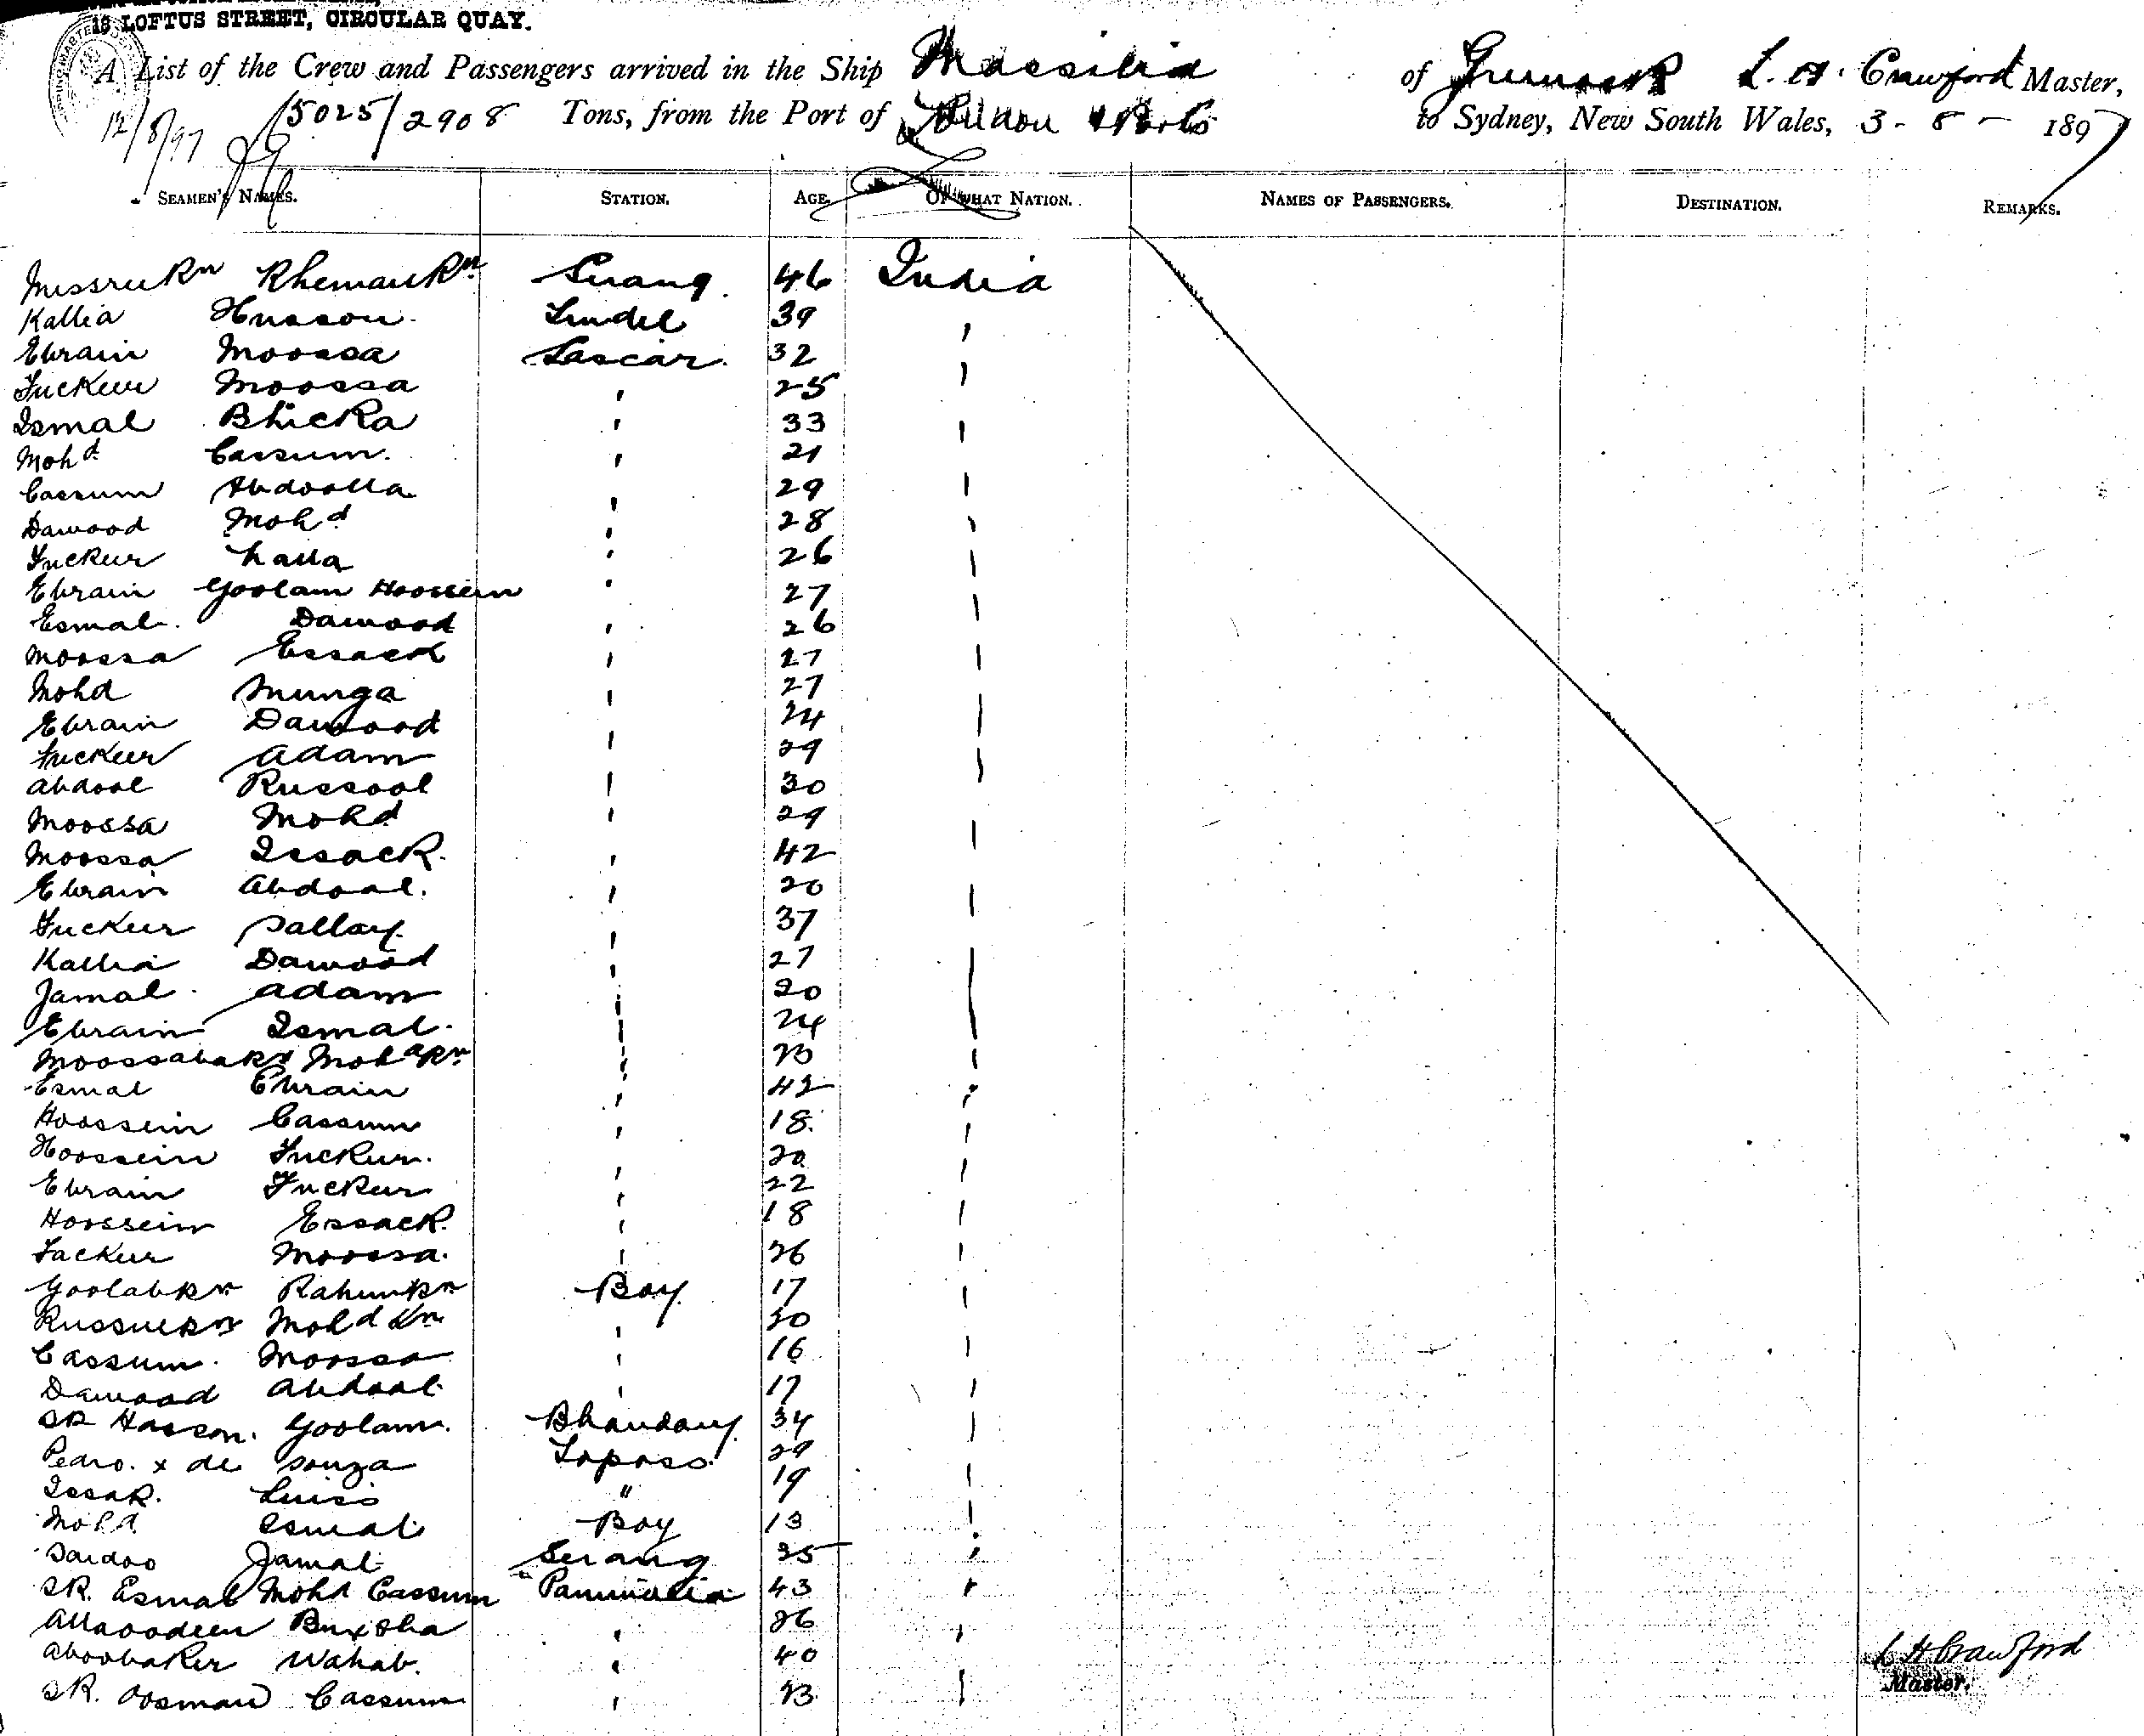 16 LOFTUS STREET, CIRCULAR QUAY.
A List of the Crew and Passengers arrived in the Ship Massilia of Greenock L. H. Crawford Master,
12/8/97 5025/2908 Tons, from the Port of London & Ports to Sydney, New South Wales, 3-8- 1897
SEAMEN'S NAMES. STATION. AGE. OF WHAT NATION. NAMES OF PASSENGERS. DESTINATION. REMARKS.
Rhemankn Serang. 46 India
Kallia Husson. Tindel 39 "
Ebrain Moossa Lascar. 32 "
Fuckeer Moossa " 25
Ismal Bhicka " 33 "
Mohd Cassum. " 21
Cassum Abdoolla. " 29 "
Dawood Mohd " 28 "
Fuckur " 26 "
Ebrain Goolam Hoossein " 27 "
Esmal. Dawood " 26
Moossa Essack " 27 "
Mohd Munga " 27
Ebrain Dawood " 24 "
Fuckeer Adam " 29 "
Abdool Russool " 30
Moossa Mohd " 29 "
Moossa Issack. " 42
Ebrain Abdool. " 20 "
Fuckur Sallay. " 37
Kallia Dawood " 27 "
Jamal. Adam " 20
Ebrain Ismal. " 24
Moossabaky Mohdkn " 23 "
Esmal Ebrain " 42 "
Hoossein Cassum " 18. "
Hoossein Fuckur. " 20 "
Ebrain Fuckur " 22
Hoossein Essack. " 18 "
Fackur Moossa. " 26 "
Goolabkn Rahimkn Boy. 17 "
Mohd Kn. " 20 "
Cassum. Moossa " 16 "
Dawood Abdool " 17 "
SK Hasson. Goolam. Bhandary. 34 "
Pedro. x de Souza Topass. 29
Issak. Luiss " 19 "
Mohd Esmal. Boy 13 "
Saidoo Jamal Serang 35 "
SK. Esmal Mohd Cassum 43 "
Allaoodeen Buxsha " 26 "
Aboobaker Wahab. " 40
SK. Oosman Cassum " 23 "
L H Crawford
Master.